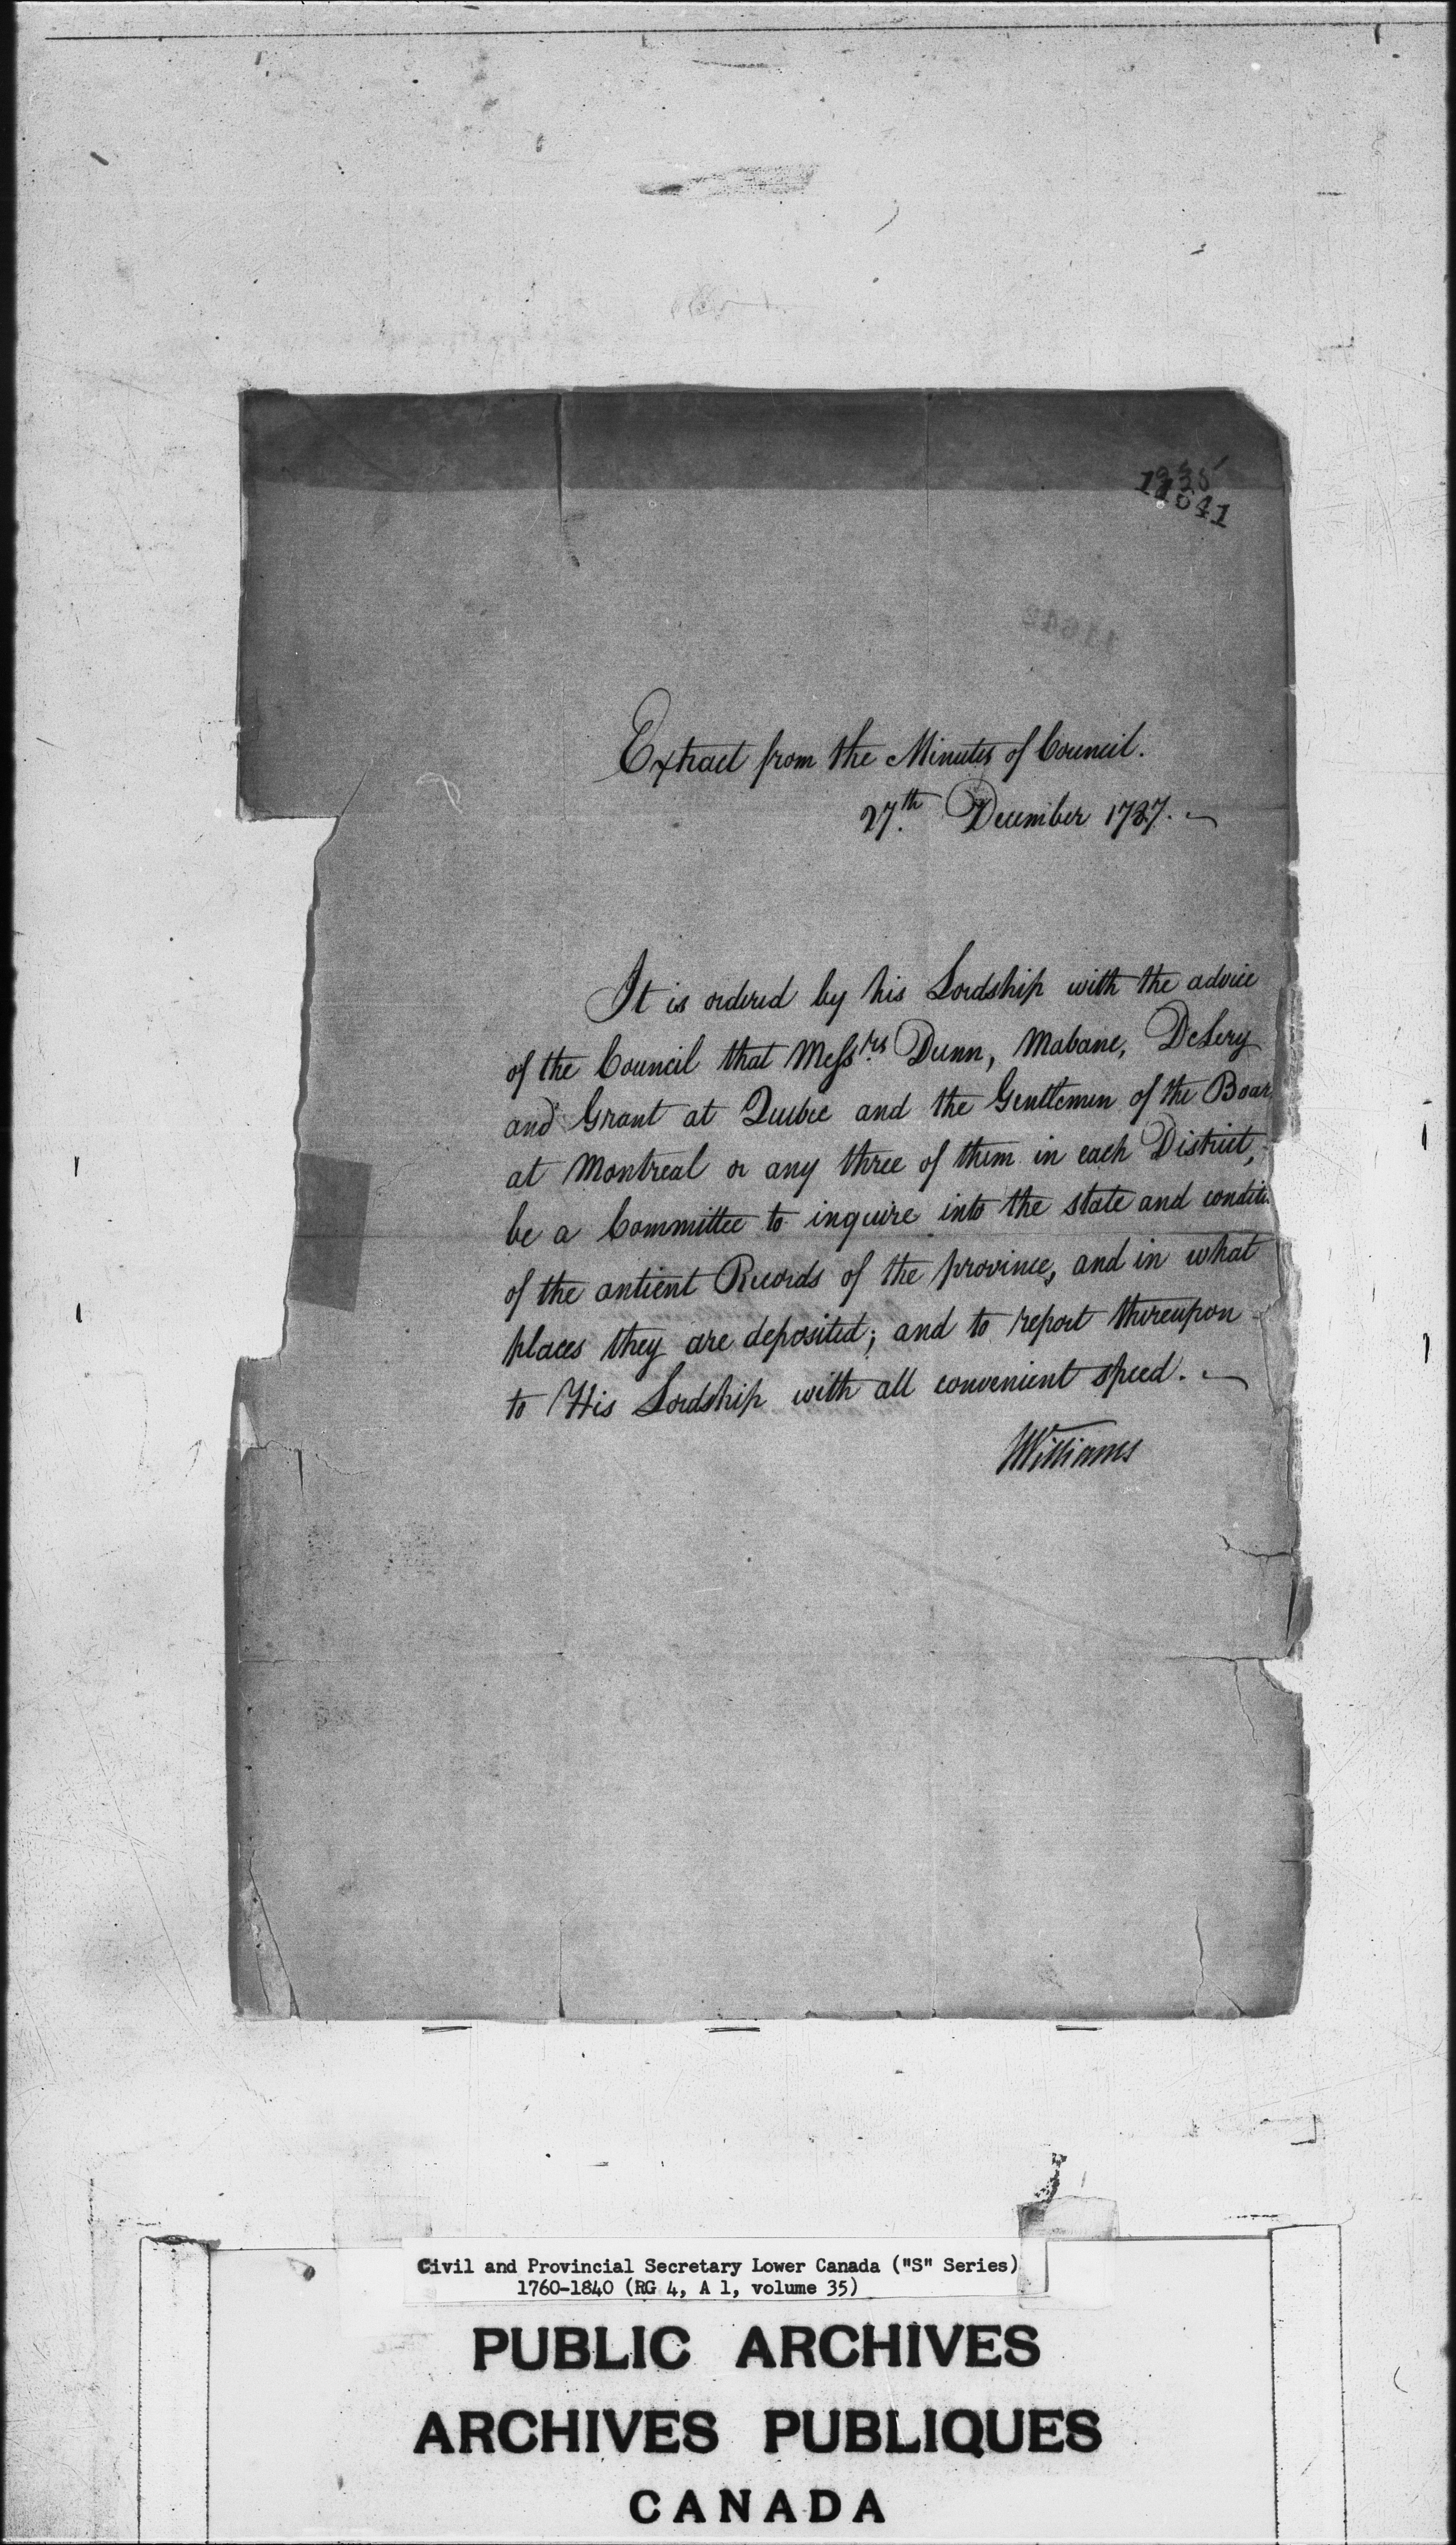 11641
Extract from the Minutes of Council.
27th. December 1787.
It is ordered by his Lordship with the advice
of the Council that Messrs. Dunn, Mabane, DeLery
and Grant at Quebec and the Gentlemen of the Boar
at Montreal or any three of them in each District,
be a Committee to inquire into the state and conditi
of the antient Records of the province, and in what
places they are deposited; and to report thereupon
to His Lordship with all convenient speed.
JWilliams
Civil and Provincial Secretary Lower Canada ("S" Series)
1760-1840 (RG 4, A 1, volume 35)
PUBLIC ARCHIVES
ARCHIVES PUBLIQUES
CANADA